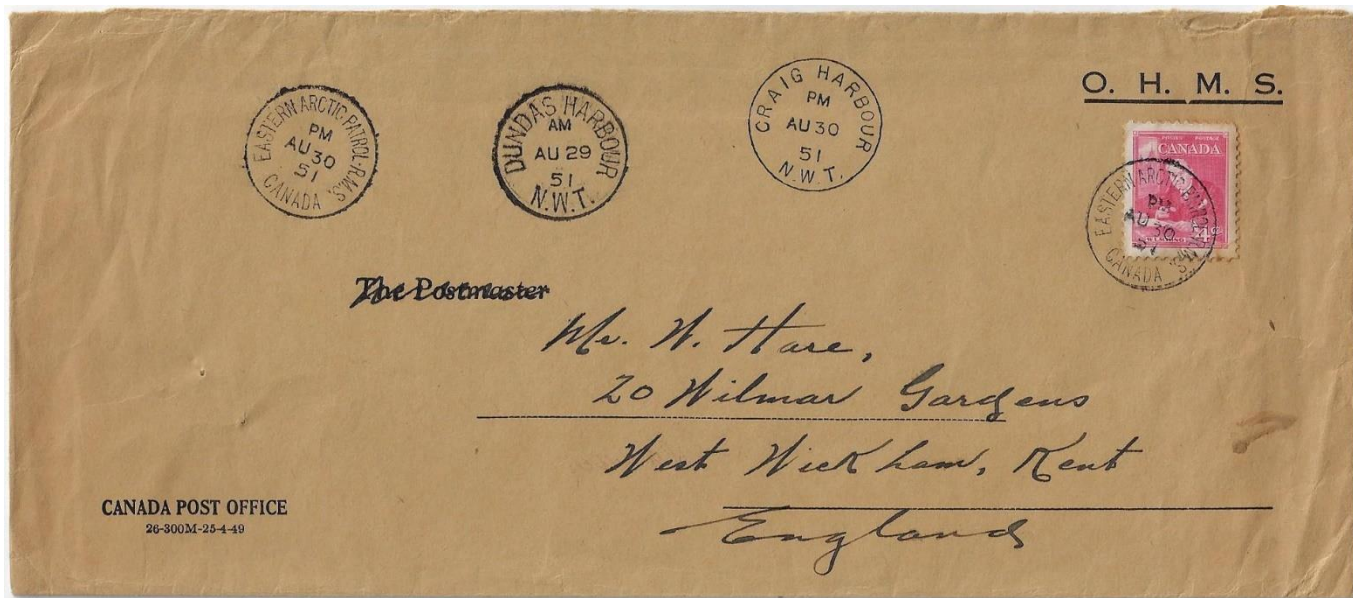 O. H. M. S.
EASTERN ARCTIC PATROL-R.M.S.
PM
AU 30
51
CANADA
DUNDAS HARBOUR
AM
AU 29
51
N.W.T.
CRAIG HARBOUR
PM
AU 30
51
N.W.T.
CANADA
4
EASTERN ARCTIC PATROL-R.M.S.
PM
AU 30
51
CANADA
The Postmaster
Mr. W. Hare,
20 Wilmar Gardens
West Wickham, Kent
England
CANADA POST OFFICE
26-300M-25-4-49